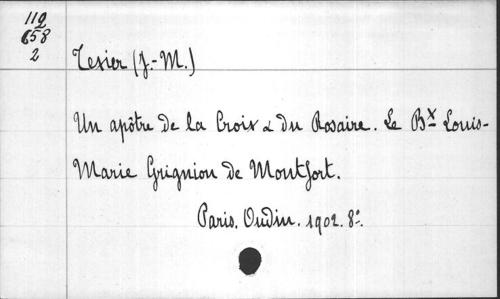 112
658
2
Texier (J.-M.)
Un apôtre de la Croix & du Rosaire. Le Bx Louis-
Marie Grignion de Montfort.
Paris. Oudin. 1902. 8º.